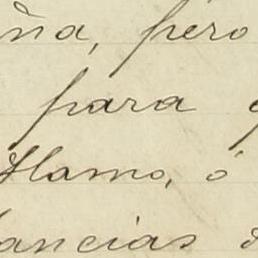 ña, pero
para
Alamo, ó
ancias